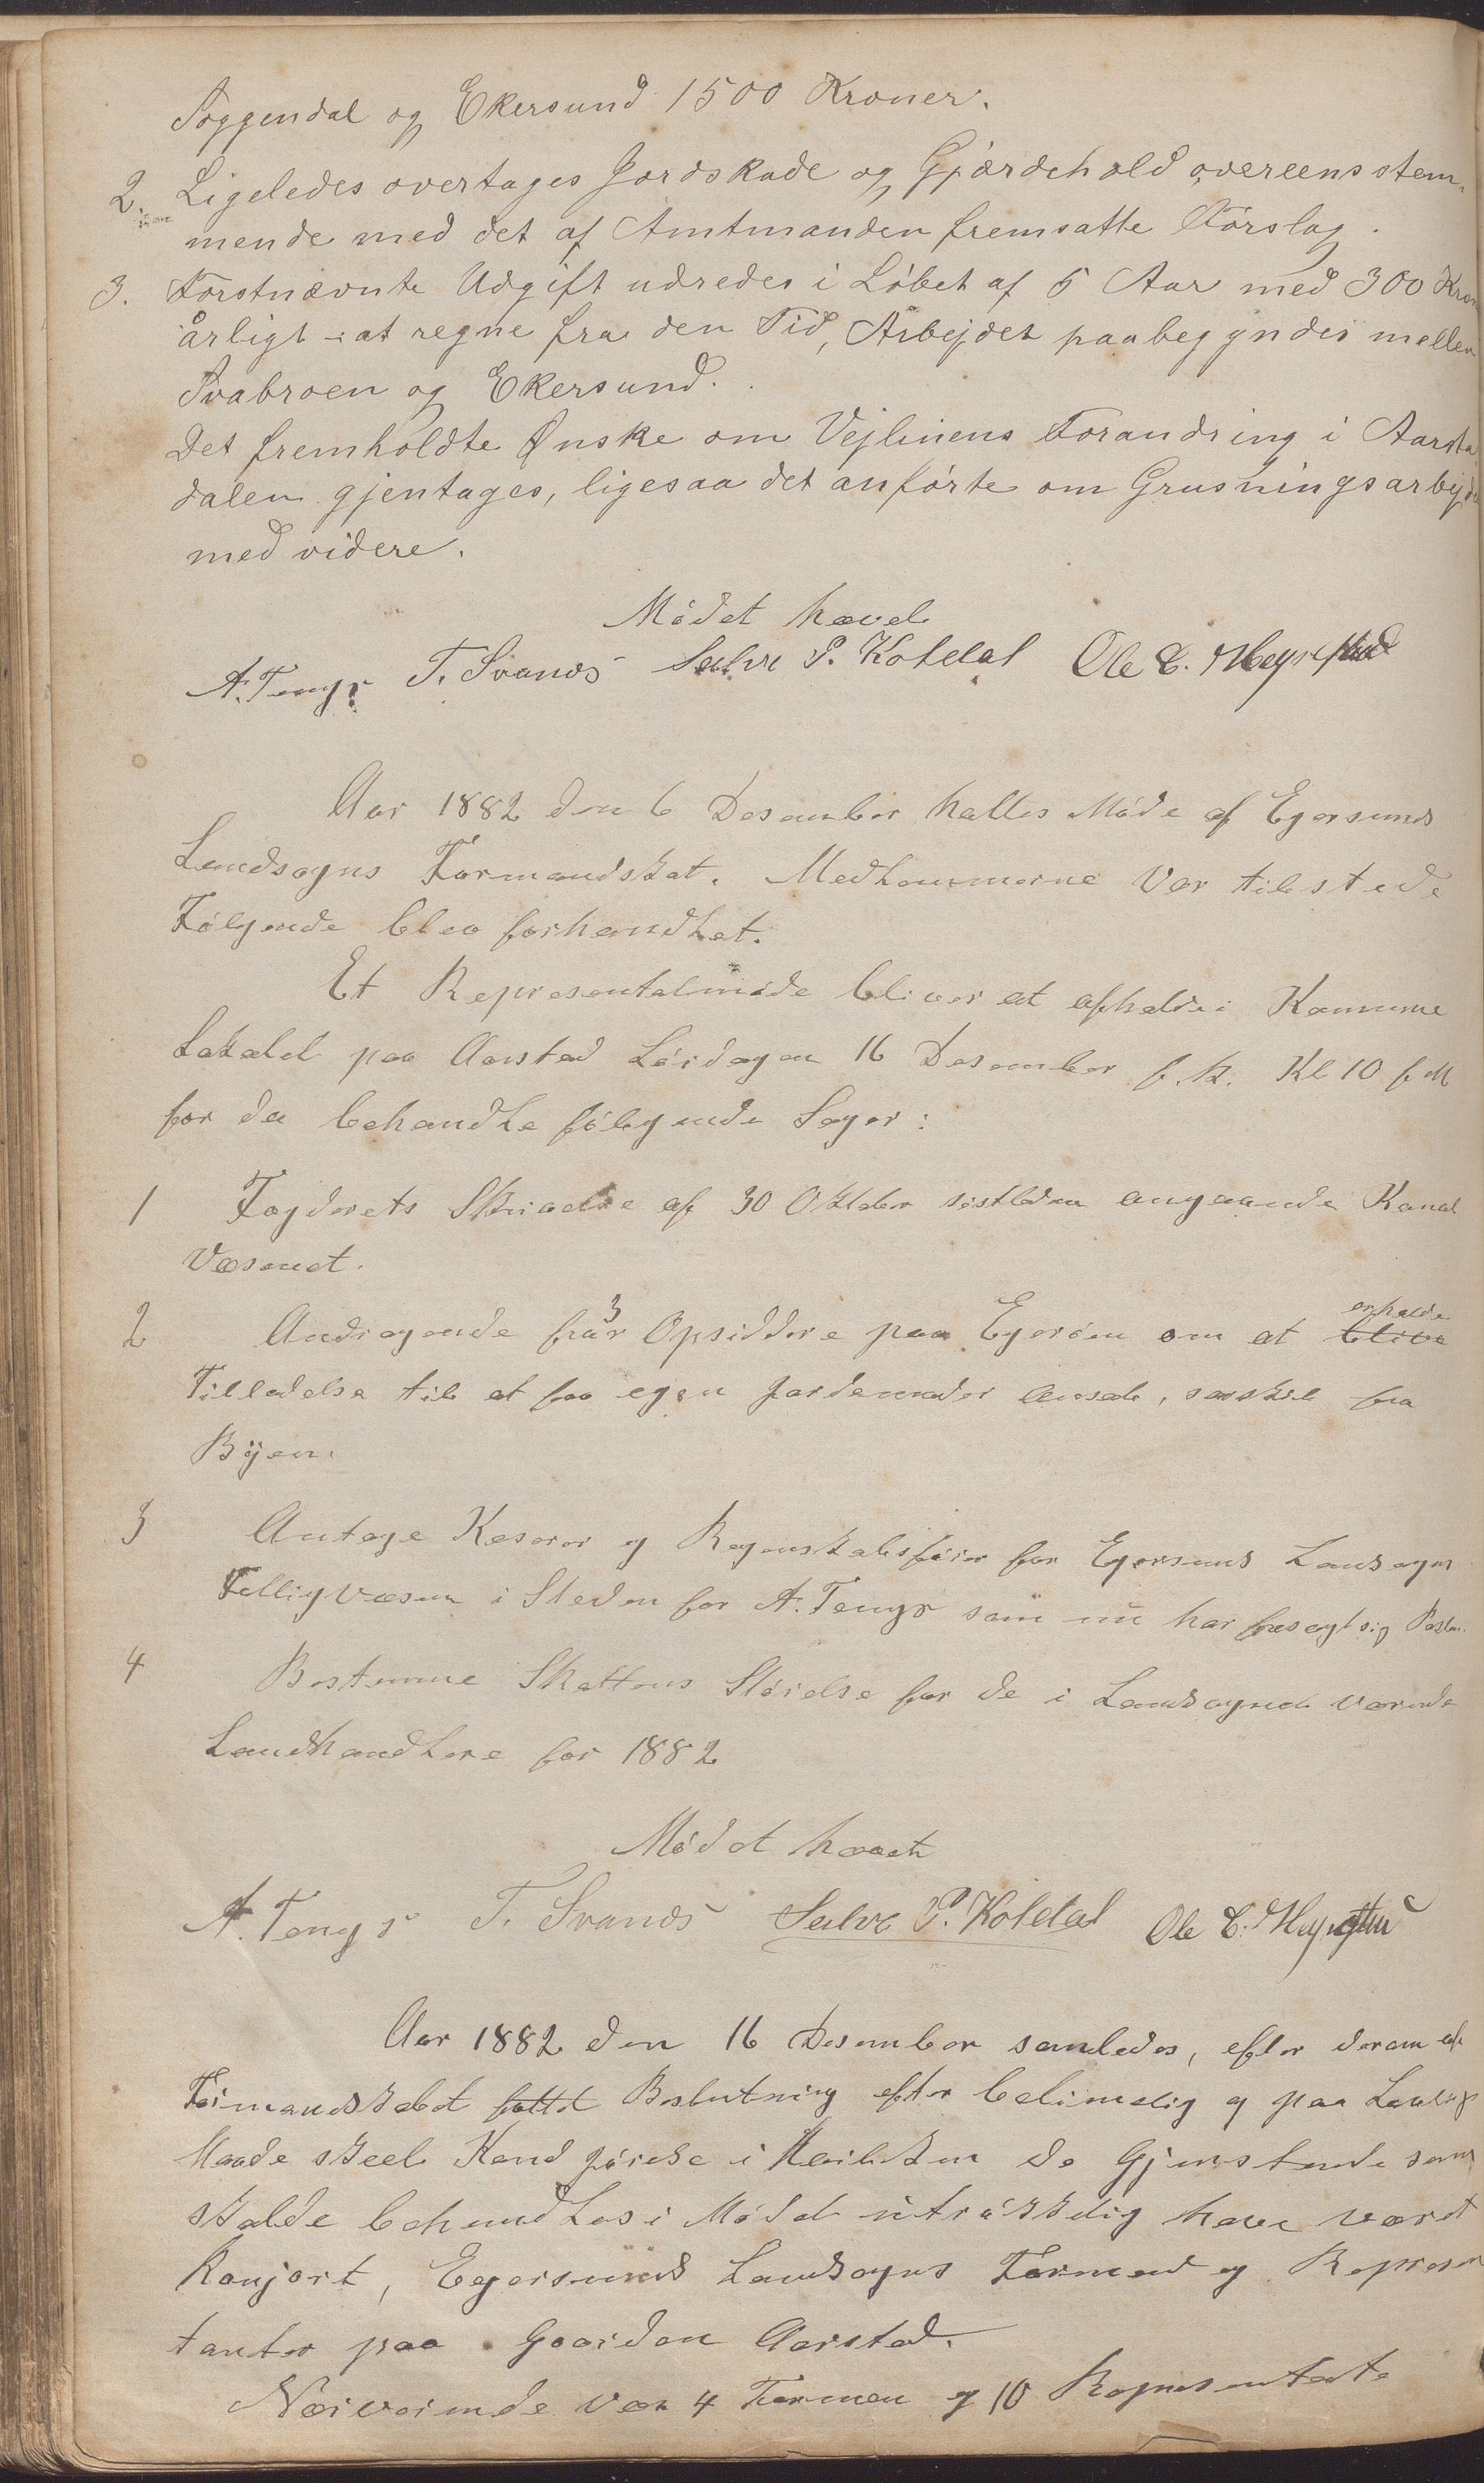 Soggendal og Ekersund 1500 Kroner.
2. Ligeledes overtages Jordskade og Gjærdehold overeensstem-
mende med det af Amtmanden fremsatte Forslag.
3. Førstnævnte Udgift udredes i Løbet af 5 Aar med 300 Kron
årligt at regne fra den Tid, Arbejdet paabegyndes mellem
Svabroen og Ekersund.
Det fremholdte Ønske om Vejlinens Forandring i Aarsta
dalen gjentages, ligesaa det anførte om Grusningsarbejde
med videre.
Mødet hævet
A. Tengs T. Svanes Salve P. Koldal Ole C.
Aar 1882 den 6 Desember holtes Møde af Egersunds
Landsogns Formandskab. Medlemmerne var tilstede
Følgende blev forhandlet.
Et Representatmøde bliver at afholde i Kommune
Lokalet paa Aarstad Lørdagen 16 Desember f.k. Kl 10 f M
for da behandle følgende Sager:
1 Fogderets Skrivelse af 30 Oktober sistleden angaaende Kanal
Væsenet.
2 Andragende fra 3 Opsiddere paa Egerøen om at blive erholde
Tilladelse til at faa egen Jordemoder ansat, særskilt fra
Byen.
3 Antage Keserer og Regenskabsfører for Egersunds Landsogns
Fattigvæsen i Steden for A. Tengs som nu har frasagt sig Posten.
4 Bestemme Skattens Størelse for de i Landsognet værende
Landhandlere for 1882
Mødet hævet
A. Tengs T. Svanes Salve P. Koldal Ole C.
Aar 1882 den 16 Desember samledes, efter derom af
Formandskabet fattet Beslutning efter betimelig og paa Lovlig
Maade skeet Kundgjørelse i Kirken de Gjenstande som
skulde behandles i Mødet utrykkelig have været
kunjort, Egersunds Landsogns Formend og Represen
tanter paa Gaarden Aarstad.
Nærværende var 4 Formen og 10 Representente